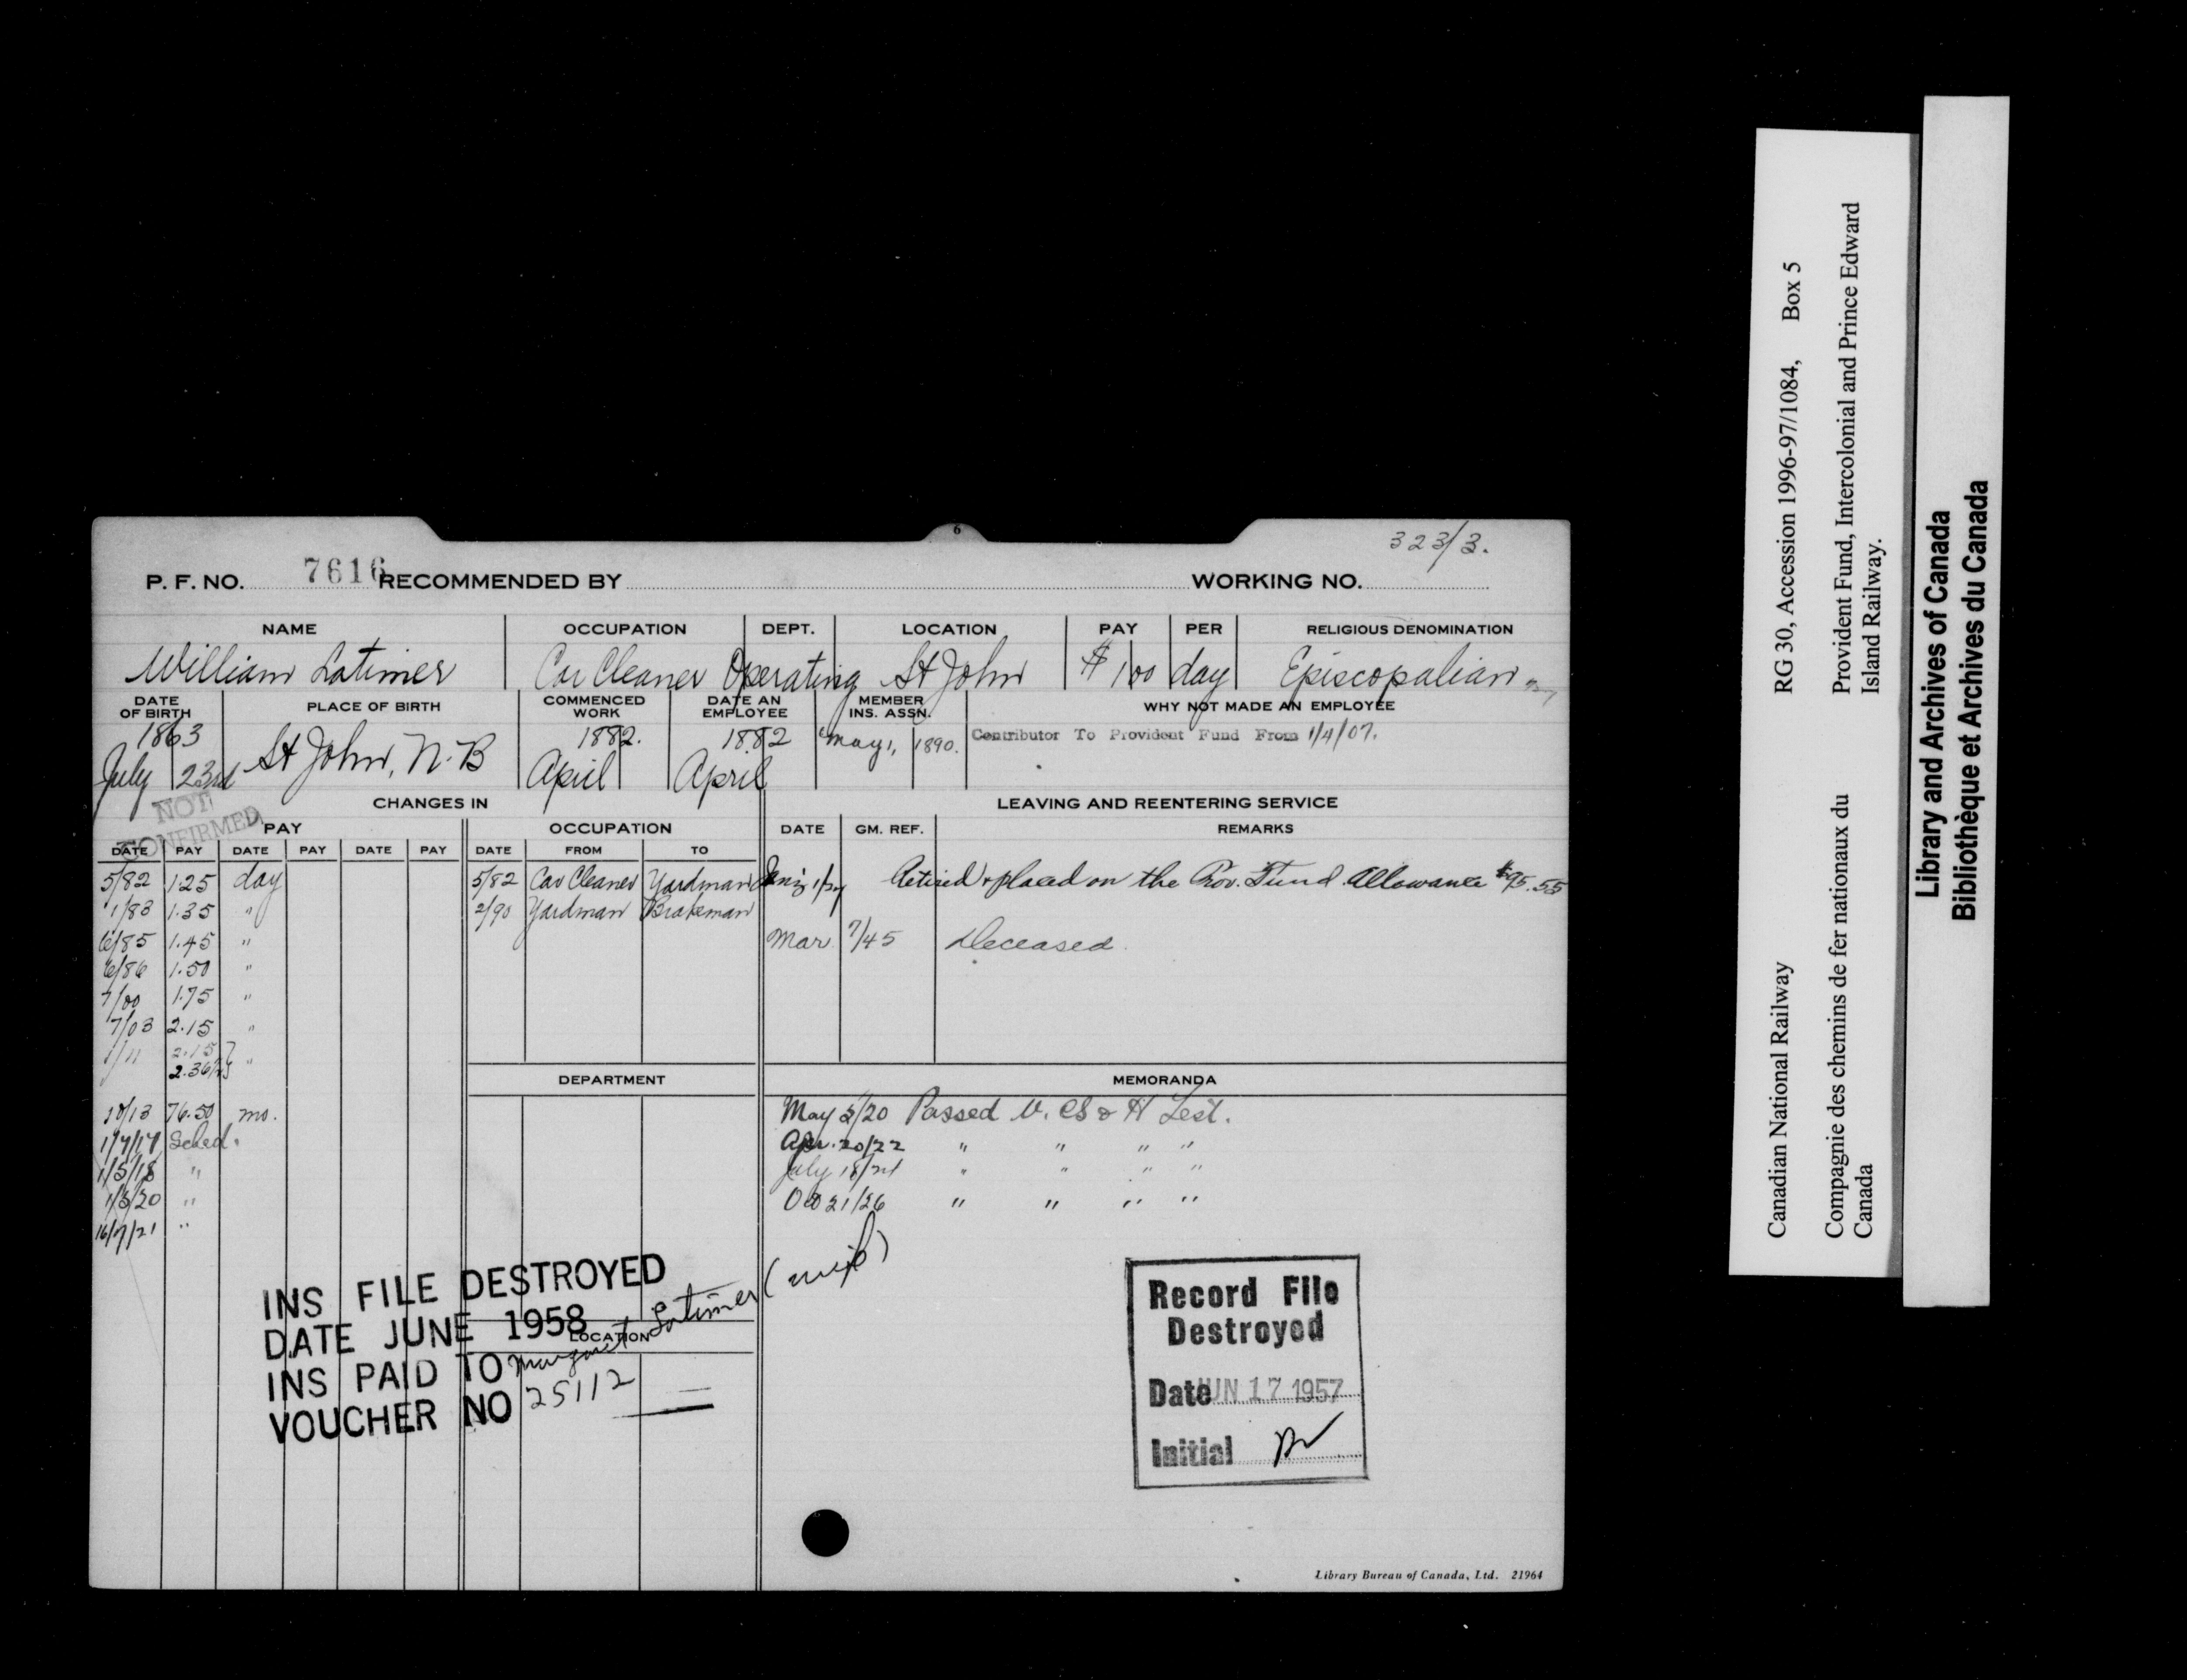 6
323/3.
P. F. NO. 7616 RECOMMENDED BY WORKING NO.
NAME OCCUPATION DEPT. LOCATION PAY PER RELIGIOUS DENOMINATION
William Latimer Car Cleaner Operating St John $ 1 00 day Episcopalian
DATE OF BIRTH PLACE OF BIRTH COMMENCED WORK DATE AN EMPLOYEE MEMBER INS. ASSN. WHY NOT MADE AN EMPLOYEE
1863 1882. 1882 May 1, 1890. Contributor To Provident Fund From 1/4/07.
July 23rd St John, N.B April April
NOT CONFIRMED
CHANGES IN LEAVING AND REENTERING SERVICE
PAY OCCUPATION DATE GM. REF. REMARKS
DATE PAY DATE PAY DATE PAY DATE FROM TO
5/82 1.25 day 5/82 Car Cleaner Yardman Retired & placed on the Prov. Fund Allowance $95.55
1/83 1.35 " 2/90 Yardman Brakeman
6/85 1.45 " Mar. 7/45 Deceased.
6/86 1.50 "
7/00 1.75 "
7/03 2.15 "
1/11 2.15 } "
2.36
DEPARTMENT MEMORANDA
10/13 76.50 mo. May 5/20 Passed V. CS & H Test.
1/7/17 Sched. Apr. 20/22 " " " "
1/5/18 " July 18/24 " " " "
1/5/20 " Oct 21/26 " " " "
16/7/21 "
INS FILE DESTROYED
DATE JUNE 1958
LOCATION
INS PAID TO Margaret Latimer (wife)
VOUCHER NO 25112
Record File
Destroyed
Date JUN 17 1957
Initial
Library Bureau of Canada, Ltd. 21964
Canadian National Railway RG 30, Accession 1996-97/1084, Box 5
Compagnie des chemins de fer nationaux du Canada
Provident Fund, Intercolonial and Prince Edward Island Railway.
Library and Archives of Canada
Bibliothèque et Archives du Canada